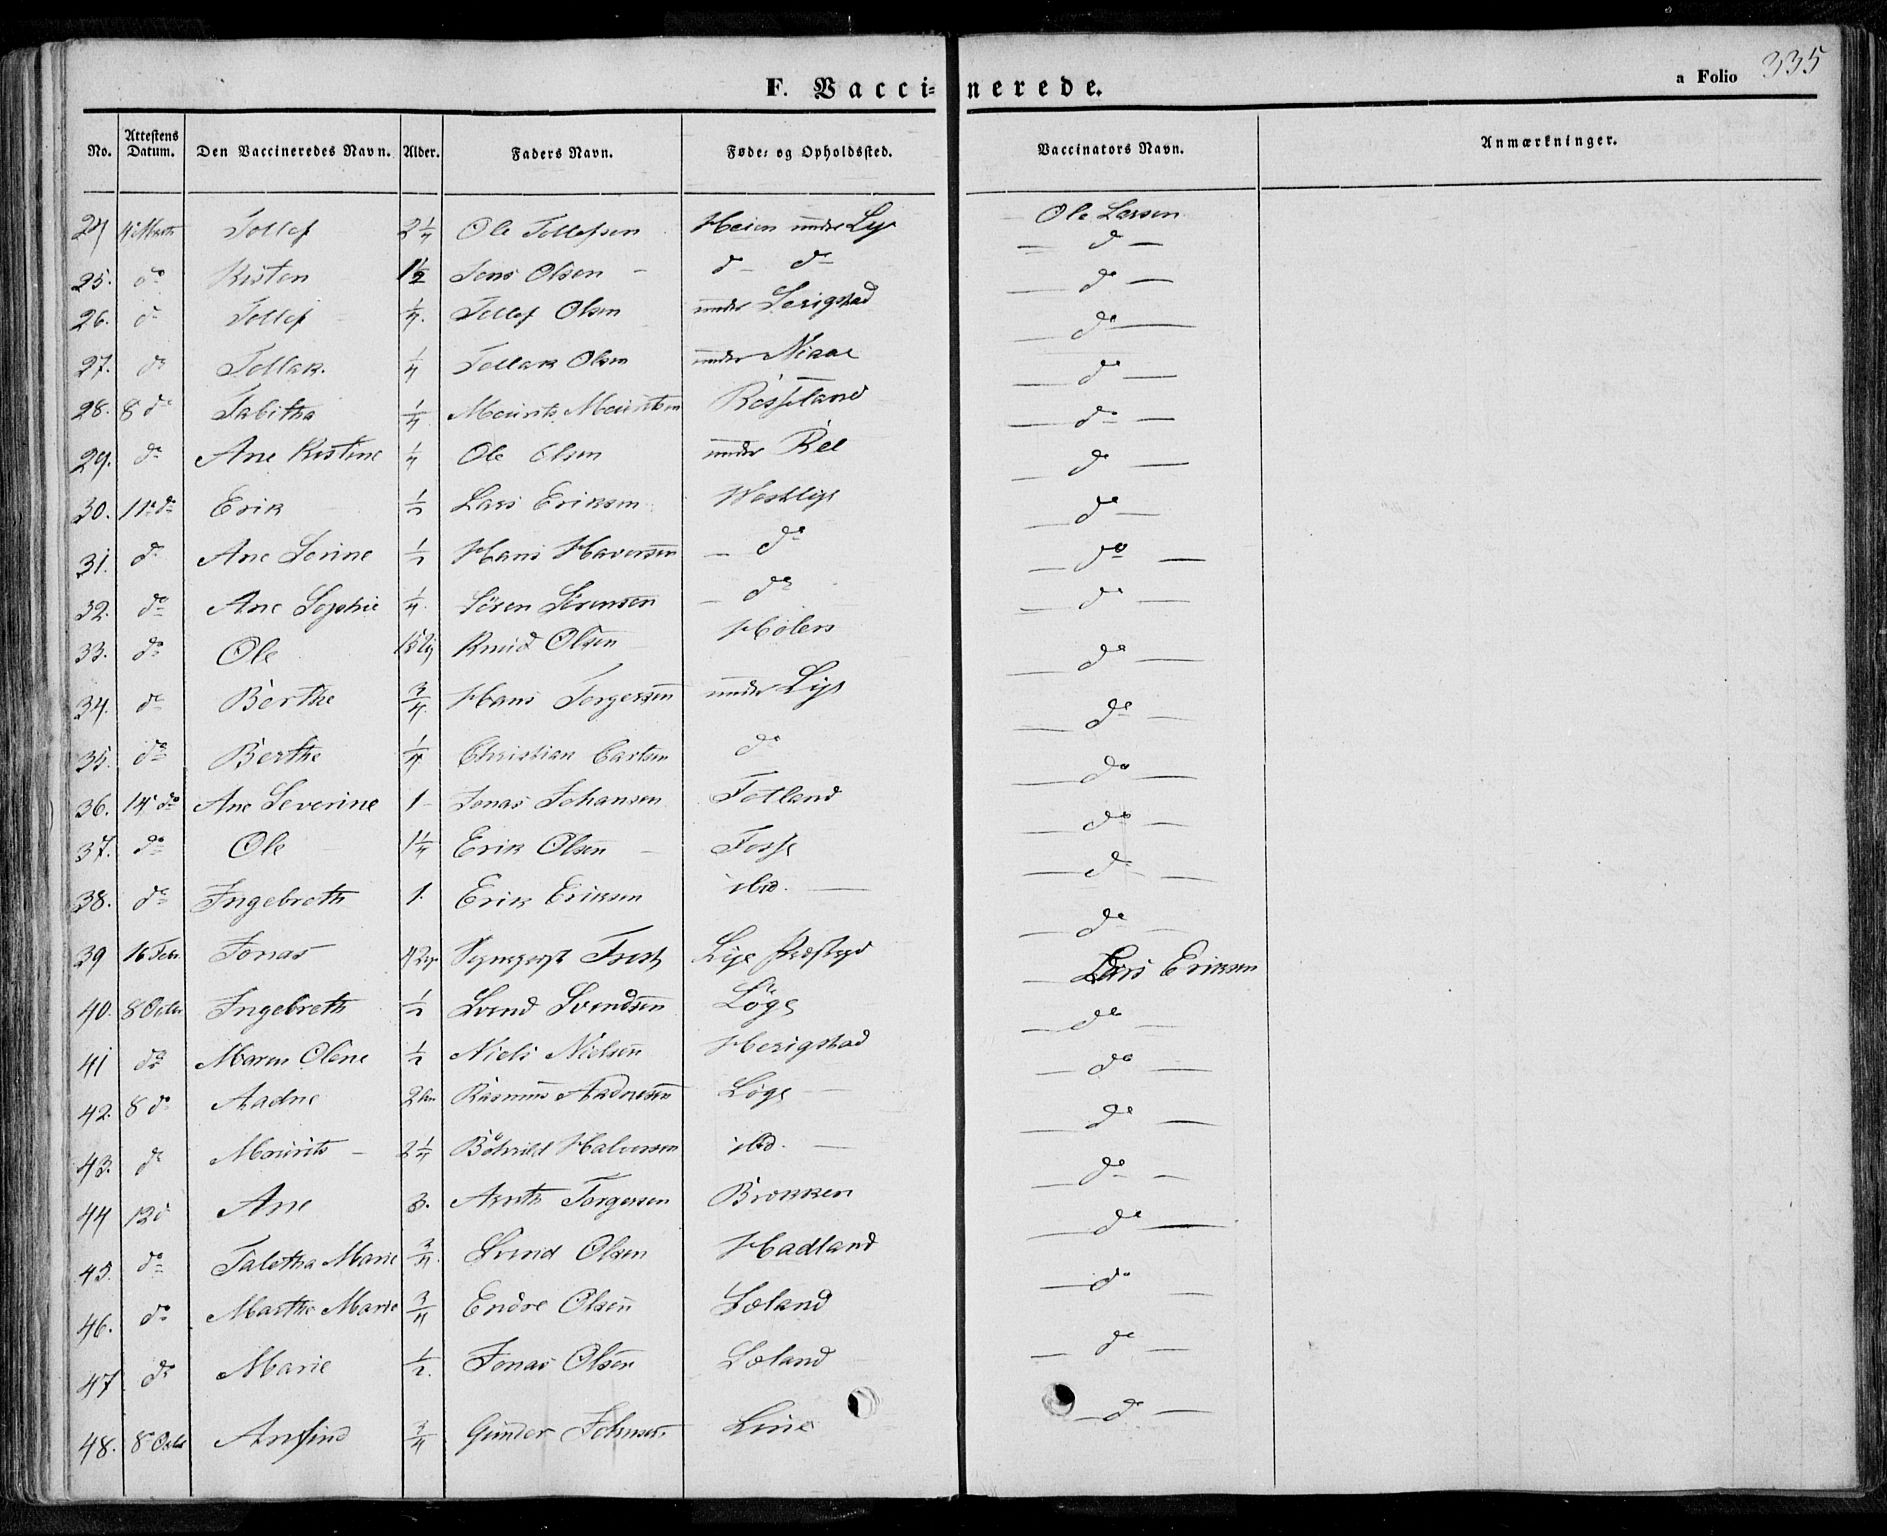 335
F. Vaccinerede.
a Folio
No. Attestens Datum. Den Vaccineredes Navn. Alder. Faders Navn. Føde- og Opholdssted. Vaccinators Navn. Anmærkninger.
24 4 Marts Tollef 2 1/4 Ole Tollefsen Heien under Lye Ole Larsen
25. do Kisten 1 1/2 Jens Olsen – d– do– – d –
26. do Tollef 1/4. Tollef Olsen under Serigstad – do –
27. do Tollak. 1/4 Tollak Olsen under Niaae – do –
28. 8 do Tabitha 1/4 Mourits Mouritsen Rosseland – do –
29. do Ane Kistine 1/4 Ole Olsen under Ree – do –
30. 11 do Erik 1/2 Lars Eriksen Westlye – do –
31. do Ane Serine 1/2 Hans Haversen – do – do –
32. do Ane Sophie 1/4. Sören Sörensen – do – do –
33. do Ole Knud Olsen – do –
34. do Berthe 3/4. Hans Torgersen under Lye – do –
35. do Berthe 1/4 Christian Carlsen do – do –
36. 14 do Ane Severine 1– Jonas Johansen Totland – do –
37. do Ole 1 1/4 Erik Olsen – Fosse – do –
38. do Ingebreth 1. Erik Eriksen ibid. – do –
39 16 Febr Jonas Lye Lars Eriksen
40. 8 Octbr Ingebreth 1/2 Svend Svendsen Löge – do –
41 do Maren Olene 1/2 Niels Nielsen Herigstad – do –
42. 8 do Aadne Rasmus Aadnesen Löge – – do –
43. do Mourits – 2 1/4 Halversen ibid. – – do –
44 12 d Ane 3. Torgersen Brokken – do –
45. do Taletha Marie 3/4. Svend Olsen Hadland – do –
46. do Marthe Marie 3/4 Endre Olsen Soland – do –
47 do Marie 1/2. Jonas Olsen Soland – do –
48. 8 Octbr Ansfind 3/4 Gunder Johnsen Line – do –